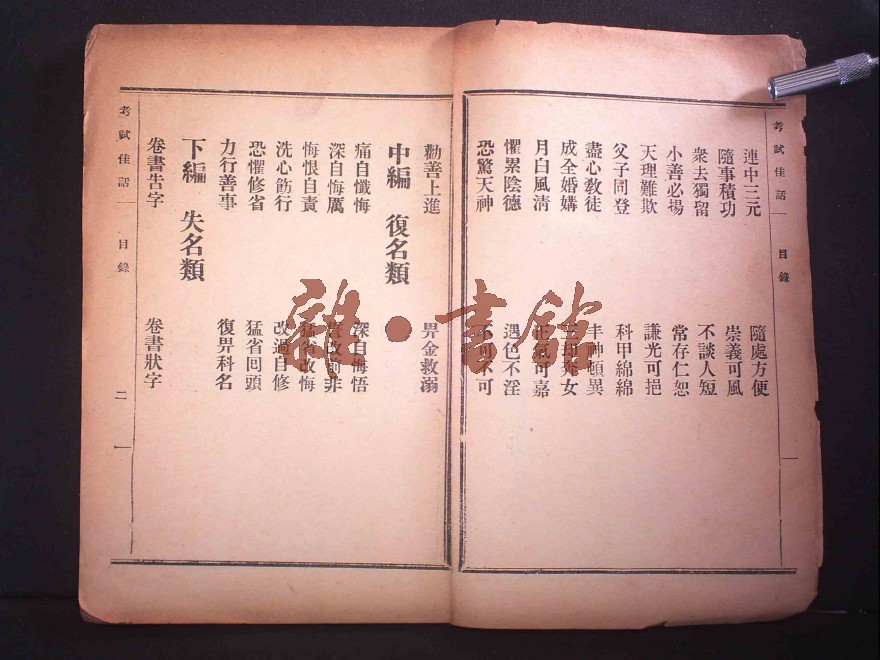 考試佳話 目錄
連中三元 隨處方便
隨事積功 崇義可風
衆去獨留 不談人短
小善必揚 常存仁恕
天理難欺 謙光可挹
父子同登 科甲綿綿
盡心教徒 丰神頓異
成全婚媾 奔女
月白風清 正氣可嘉
懼累陰德 遇色不淫
恐驚天神 不可不可
勸善上進 畀金救溺
中編 復名類
痛自懺悔 深自悔悟
深自悔厲 改前非
悔恨自責 猛省改悔
洗心飭行 改過自修
恐懼修省 猛省回頭
力行善事 復畀科名
下編 失名類
卷書告字 卷書狀字
考試佳話 目錄 二
雜·書館